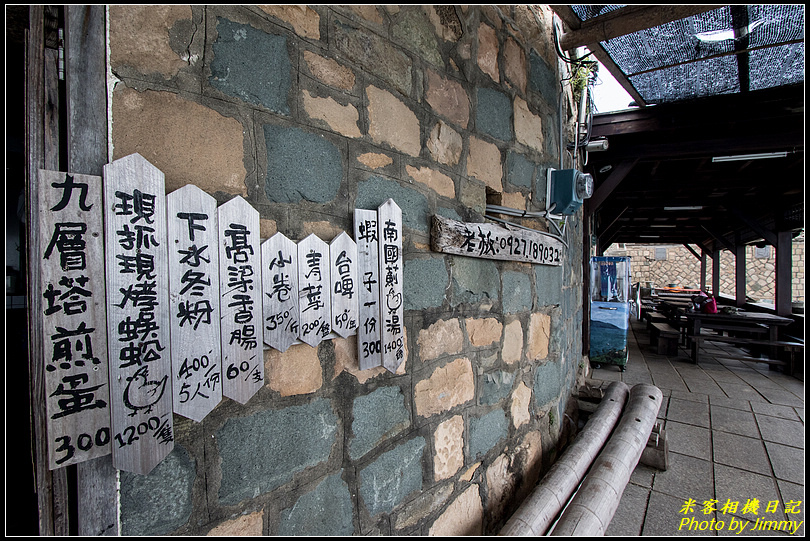 九層塔煎蛋 300
現抓現烤蜈蚣 1200/隻
下水冬粉 400/5人份
高梁香腸 60/份
小卷 350/斤
青菜 200/份
台啤
蝦子一份 300
南國薊雞湯 1400/隻
老放 0927.189032
米客相機
Photo by Jimmy